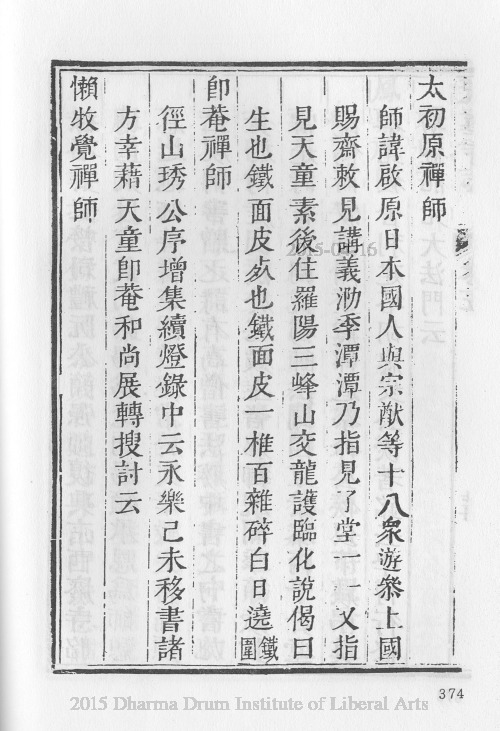 太初原禪師
師諱啟原日本國人與宗猷等十八衆遊叅上國
賜齋敕見講義泐季潭潭乃指見了堂一一又指
見天童素後住羅陽三峰山交龍護臨化說偈曰
生也鐵面皮死也鐵面皮一椎百雜碎白日遶鐵圍
卽菴禪師
徑山琇公序增集續燈錄中云永樂己未移書諸
方幸藉天童卽菴和尚展轉搜討云
懶牧覺禪師
374
2015 Dharma Drum Institute of Liberal Arts